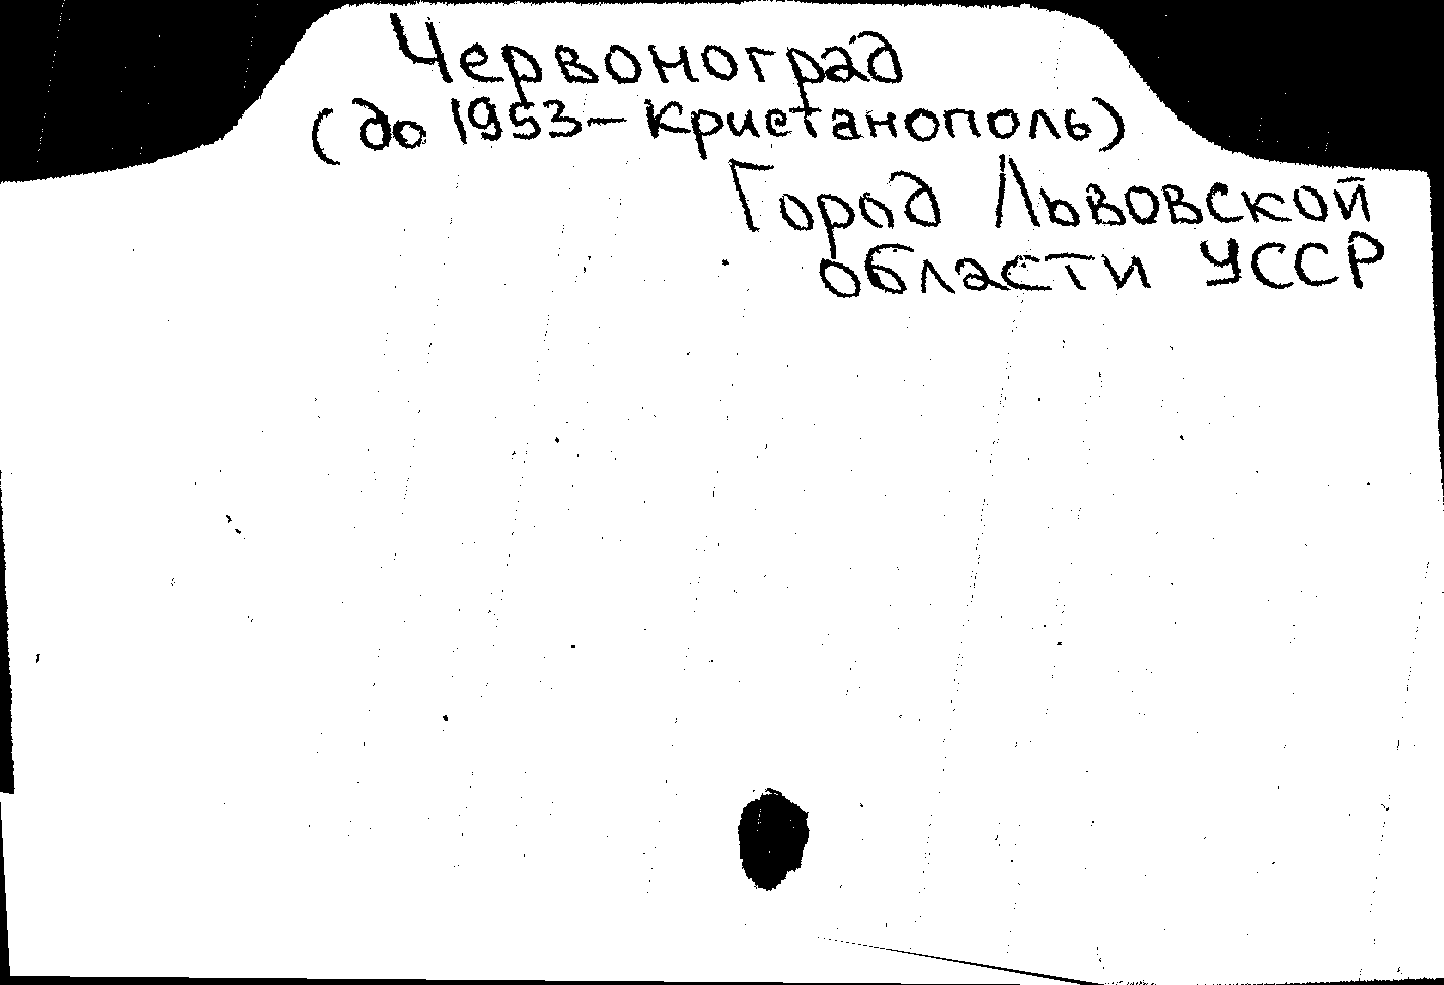 Червоноград
(до 1953 – Кристанополь)
Город Львовской
области УССР